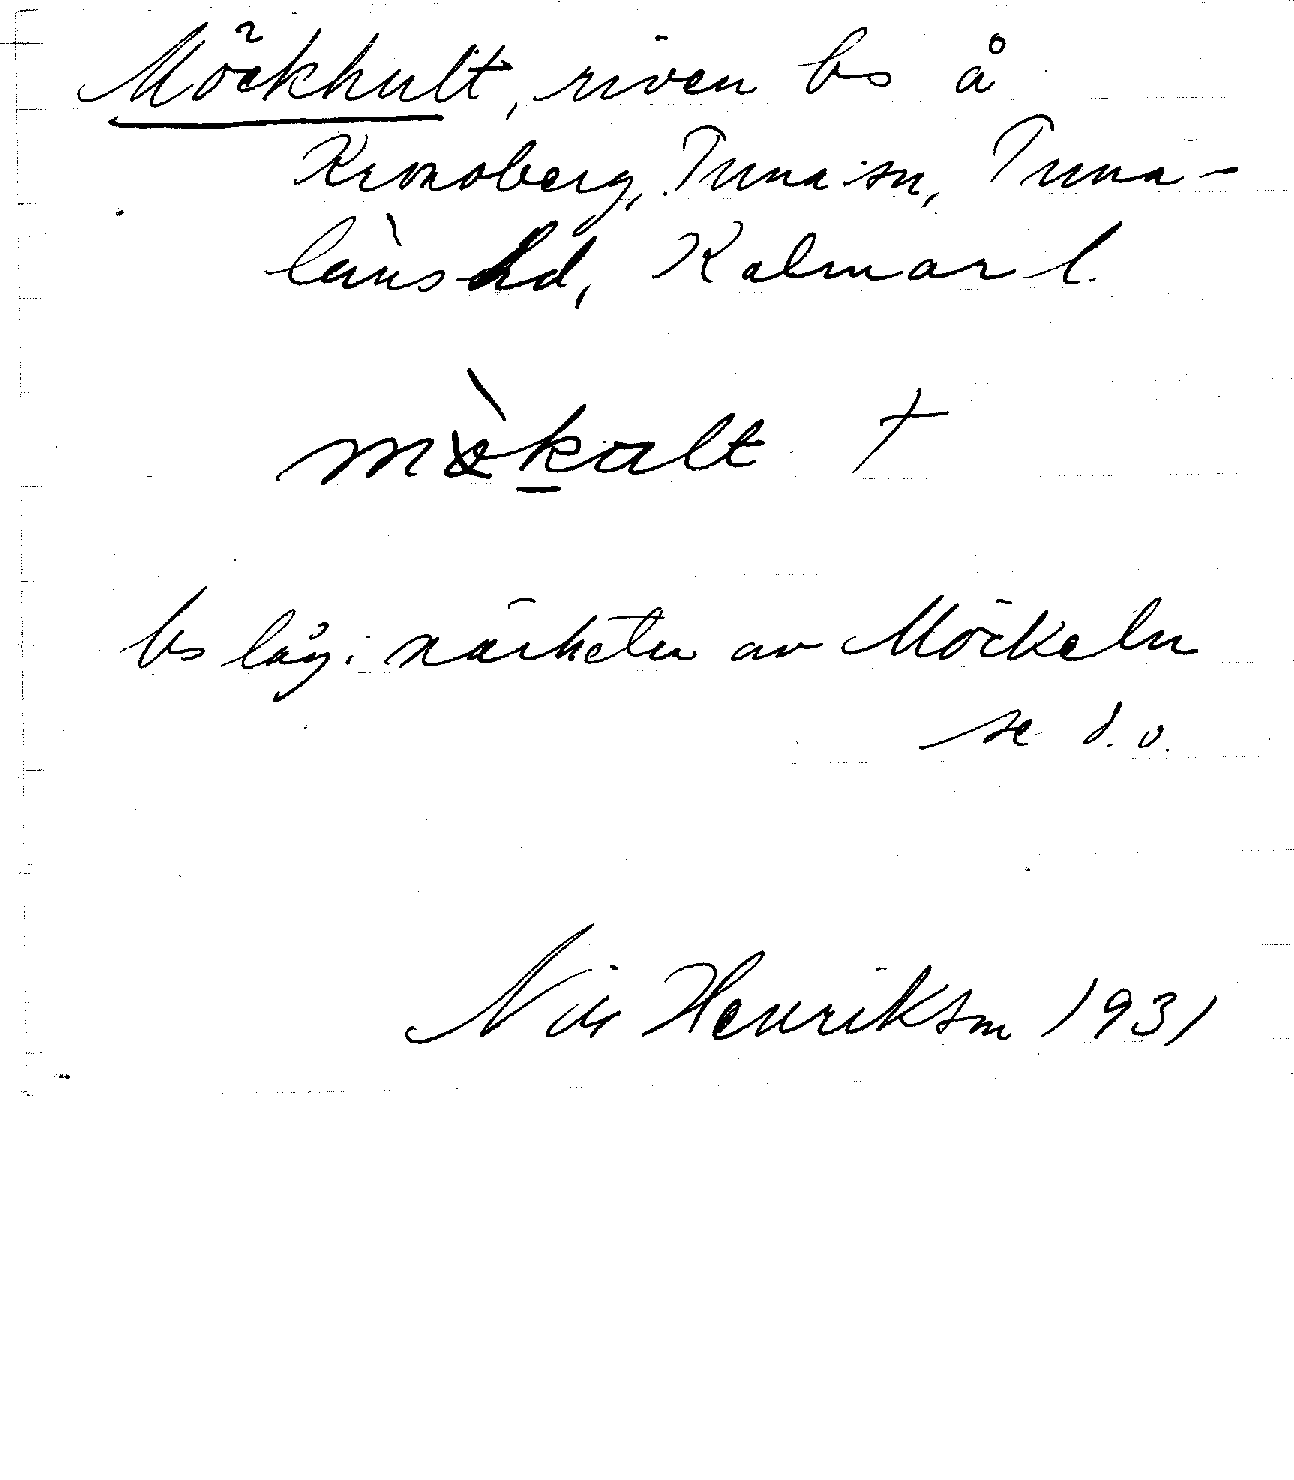 Möckhult, riven bs å
Kronoberg, Tuna sn, Tuna-
läns hd, Kalmar l.
bs låg i närheten av Möckeln
se d. o.
Nils Henriksson 1931